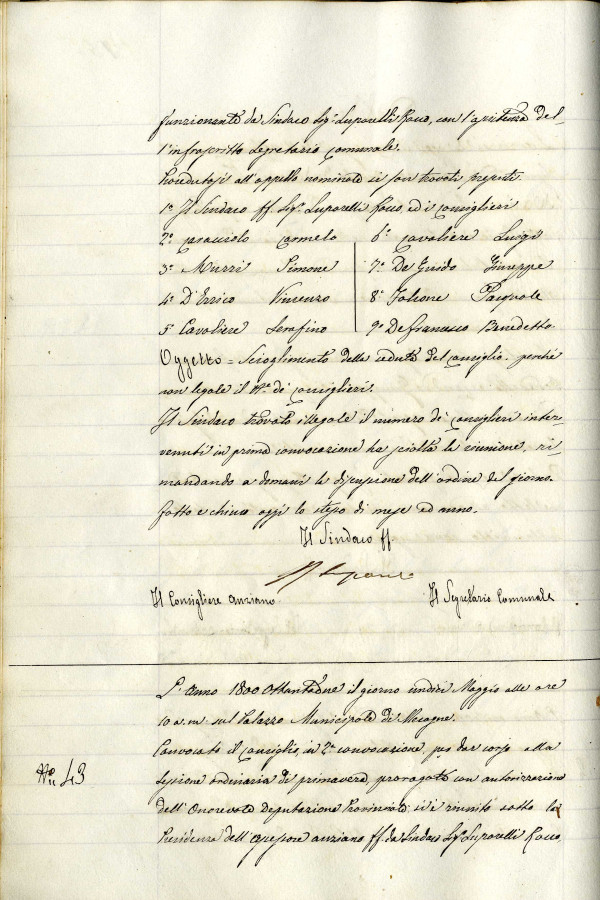 funzionante da Sindaco Sigr. Luparelli Rocco, con l'assistenza del-
l'infrascritto Segretario Comunale.
Procedutosi all'appello nominale si son trovati presenti.
1° Il Sindaco ff. Sigr. Luparelli Rocco, ed i Consiglieri
2° Caracciolo Carmelo 6° Cavaliere Luigi
3° Muzzi Simone 7° De Guido Giuseppe
4° D'Errico Vincenzo 8° Falcone Pasquale
5° Cavaliere Serafino 9° De Francesco Benedetto
Oggetto = Scioglimento della seduta del Consiglio perché
non legale il N.° di Consiglieri.
Il Sindaco trovato illegale il numero di Consiglieri inter-
venuti in prima convocazione ha sciolta la riunione, ri-
mandando a domani la discussione dell'ordine del giorno.
Fatto e chiuso oggi lo stesso dì mese ed anno.
Il Sindaco ff.
Il Consigliere anziano Il Segretario Comunale
L'anno 1800 Ottantadue il giorno undici Maggio alle ore
10 a.m. sul Palazzo Municipale di Mesagne.
Convocato il Consiglio, in 2ª convocazione, per dar corso alla
N.° 43
Sessione ordinaria di primavera, prorogata con autorizzazione
dell'Onorevole Deputazione Provinciale, si è riunito sotto la
Presidenza dell'Assessore anziano ff. da Sindaco Sigr. Luparelli Rocco,